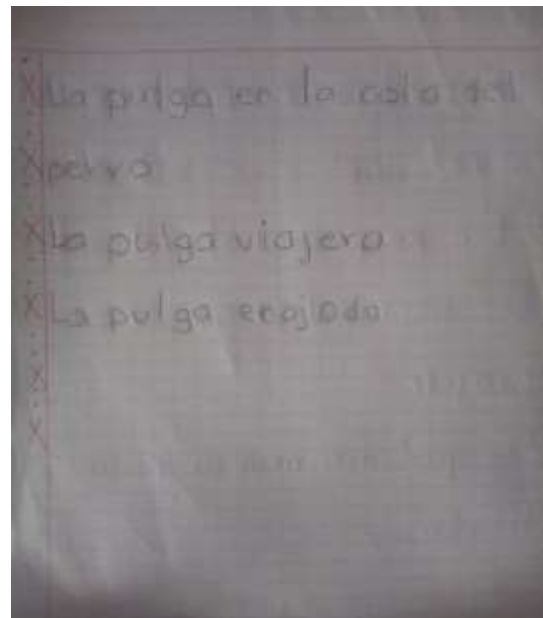 La pulga en la cola del
perro
La pulga viajera
La pulga enojada